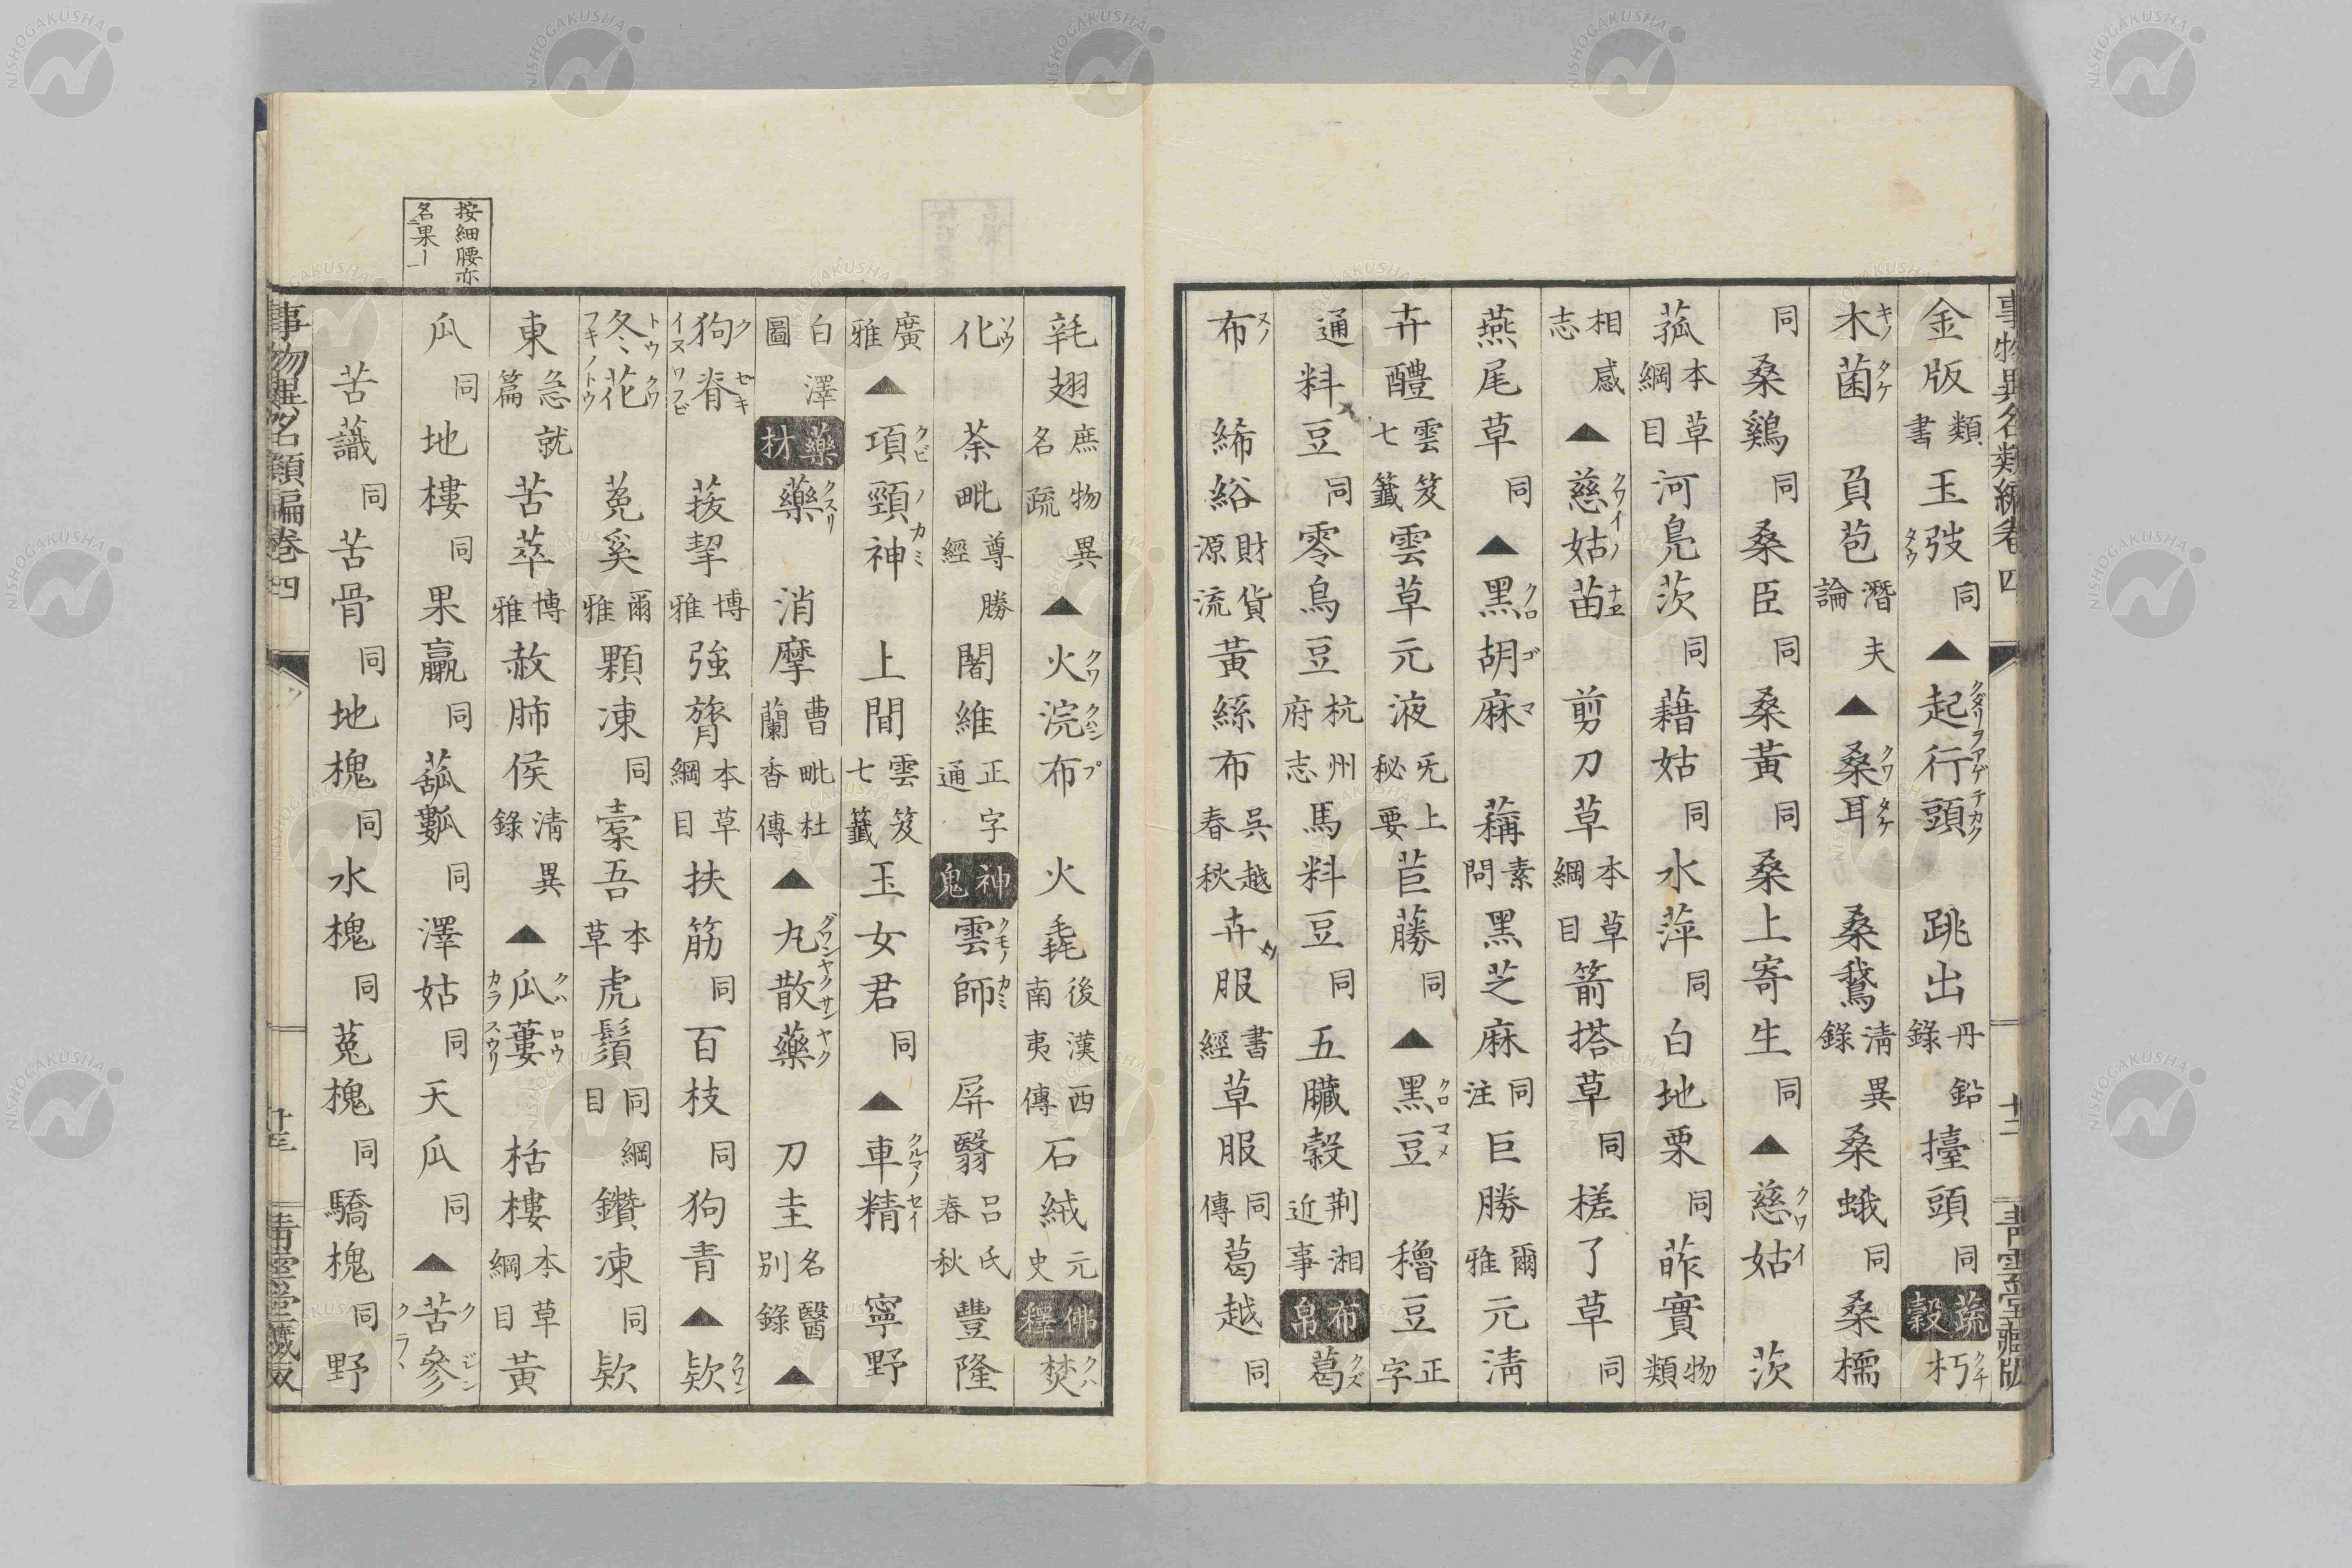 事物異名類編卷四 十二 青雲堂藏版
金版類書玉弢同▲起行頭跳出丹鉛錄擡頭同蔬穀朽
木菌負苞潛夫論▲桑耳桑鵞淸異錄桑蛾同桑檽
同桑鷄同桑臣同桑黃同桑上寄生同▲慈姑茨
菰本草綱目河鳧茨同藉姑同水萍同白地栗同䓎實物類
相感志▲慈姑苗剪刀草本草綱目箭搭草同槎了草同
燕尾草同▲黑胡麻藊素問黑芝麻同注巨勝爾雅元淸
卉醴雲笈七籤雲草元液旡上秘要苣藤同▲黑豆穭豆正字
通料豆同零烏豆杭州府志馬料豆同五臟穀荆湘近事布帛葛
布絺綌財貨源流黃絲布吳越春秋卉服書經草服同傳葛越同
毦翅庶物異名疏▲火浣布火毳後漢南夷西傳石絨元史佛釋焚
化荼毗尊勝經闍維正字通神鬼雲師屏翳呂氏春秋豐隆
廣雅▲項頸神上間雲笈七籤玉女君同▲車精寧野
白澤圖藥材藥消摩曹毗杜蘭香傳▲丸散藥刀圭名醫別錄▲
狗脊菝挈博雅強膂本草綱目扶筋同百枝同狗青▲欵
冬花菟奚爾雅顆凍同橐吾本草虎鬚同綱目鑽凍同欵
東急就篇苦萃博雅赦肺侯淸異錄▲瓜蔞栝樓本草綱目黃
瓜同地樓同果臝同菰𤬄同澤姑同天瓜同▲苦參
苦蘵同苦骨同地槐同水槐同菟槐同驕槐同野
按細腰亦
名果
事物異名類編卷四 十三 青雲堂藏版